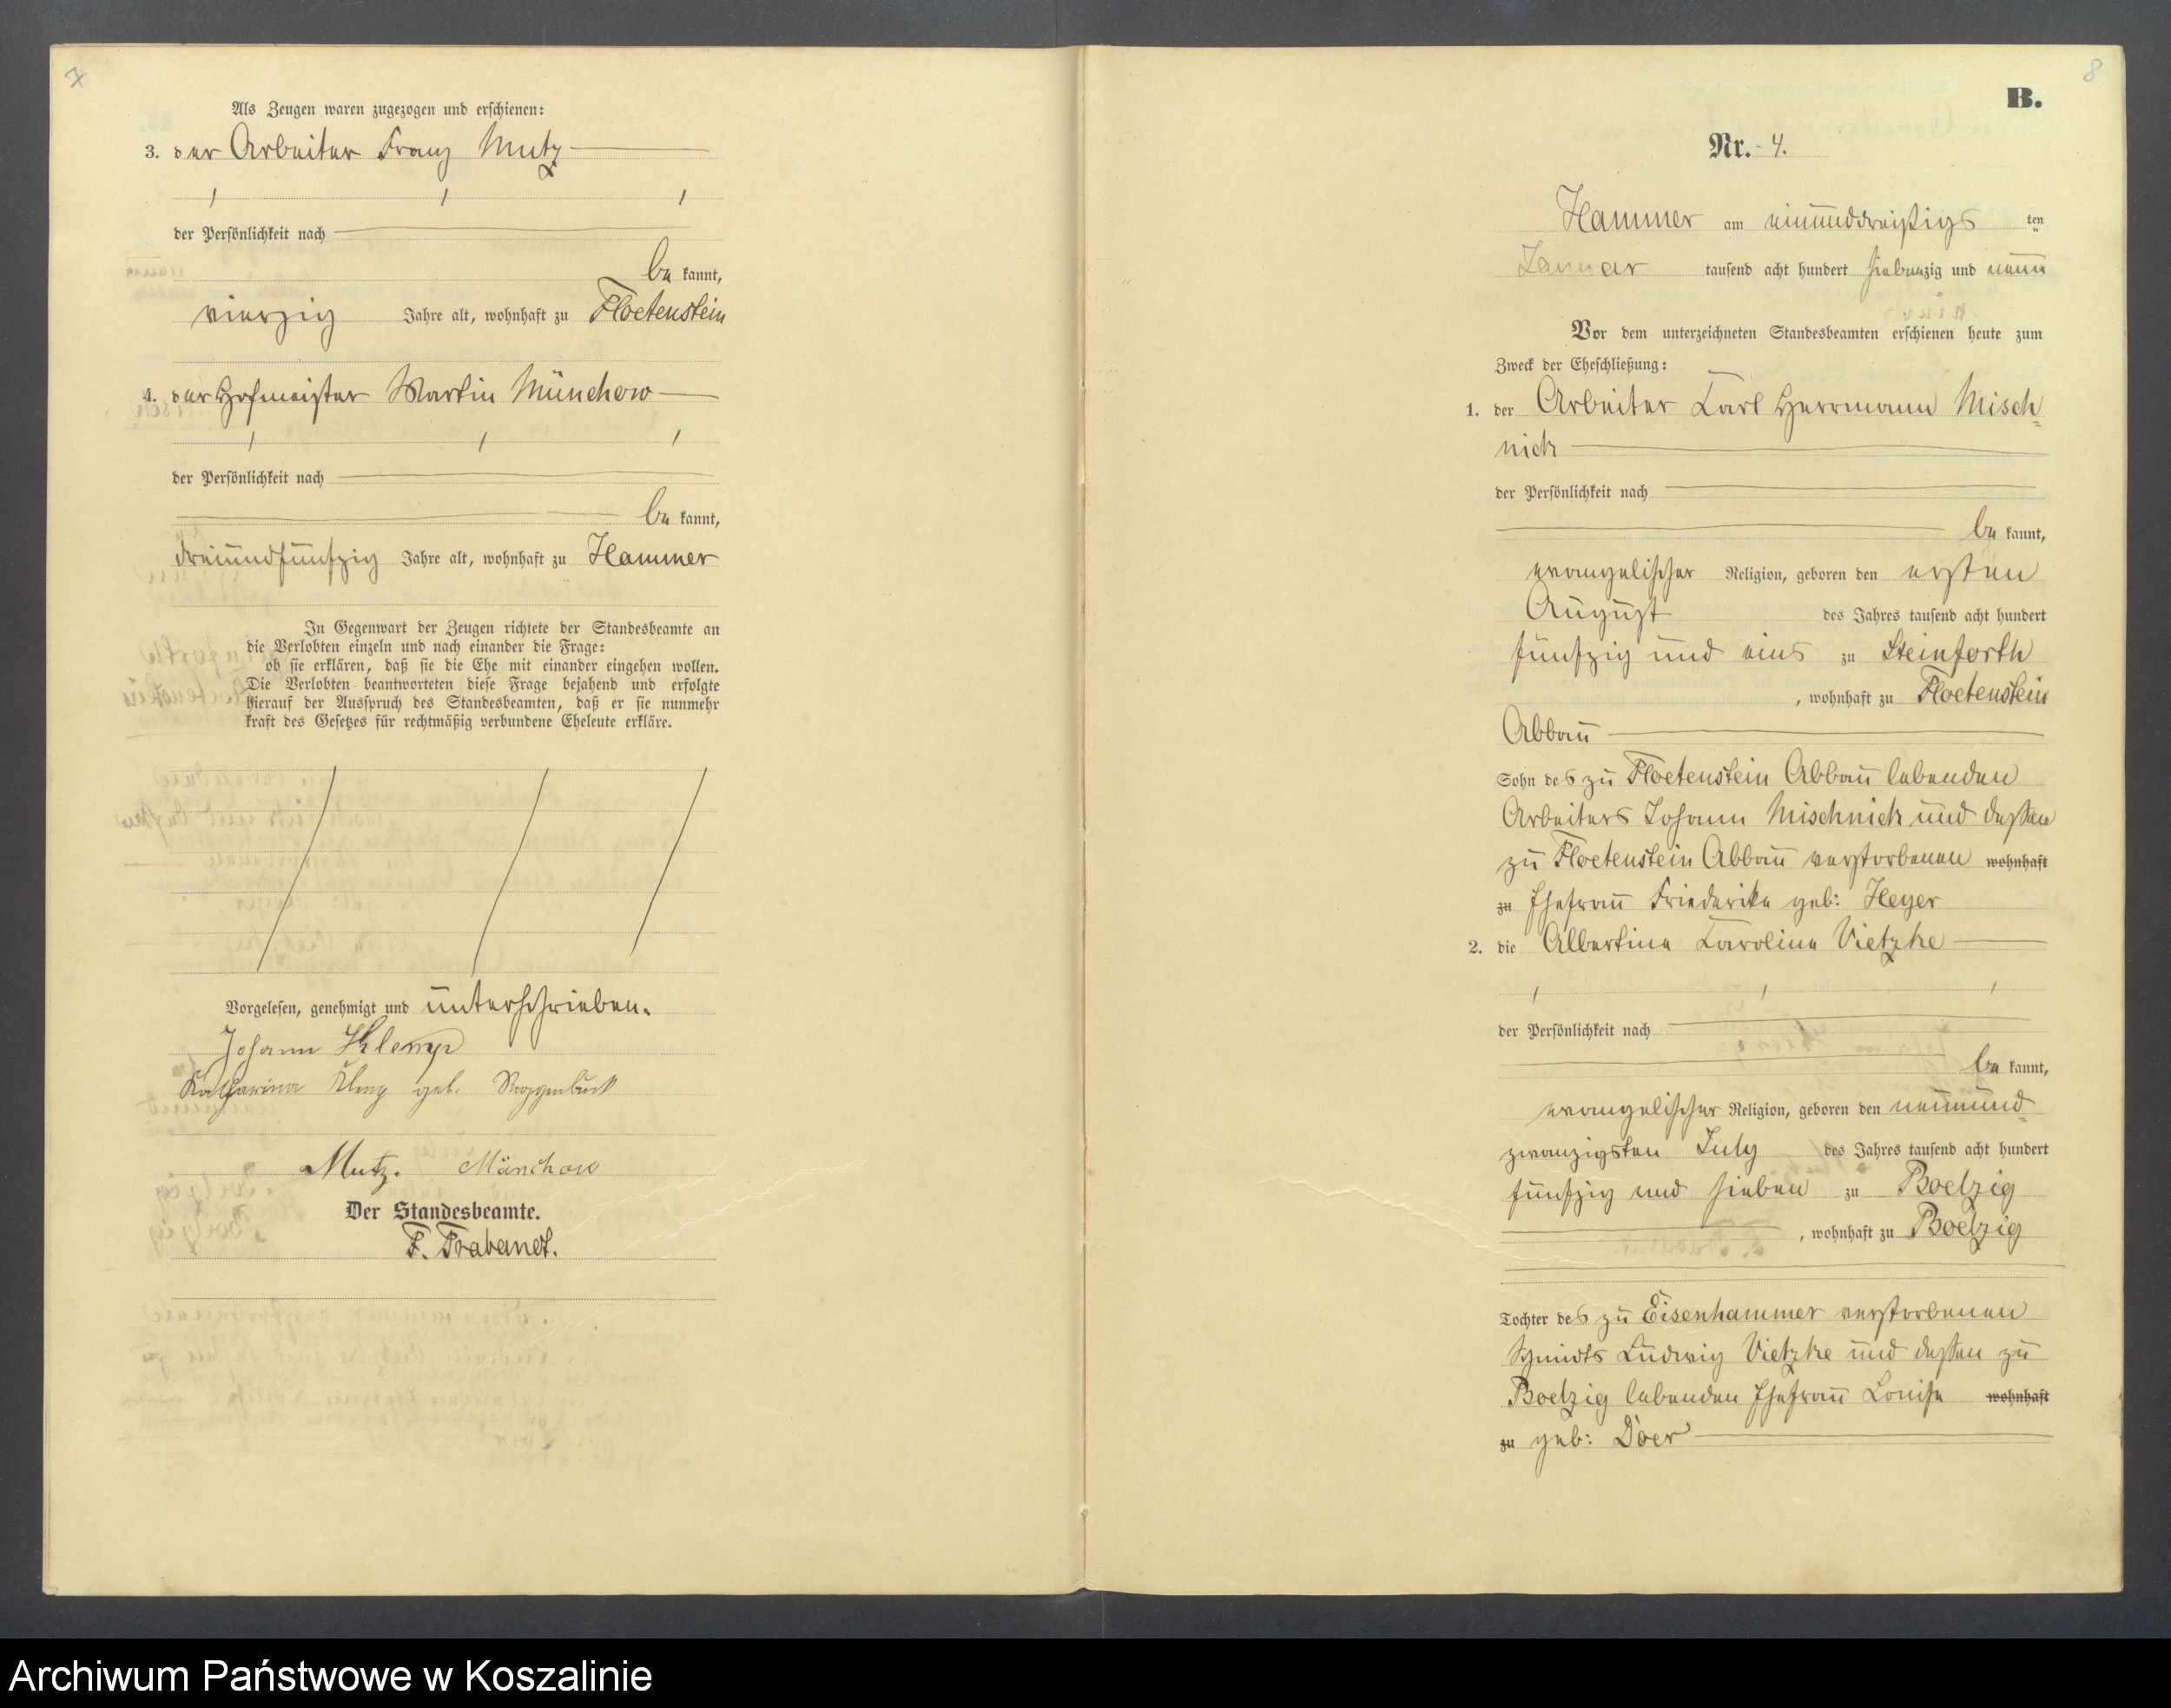 7
Als Zeugen waren zugezogen und erschienen:
3. der Arbeiter Franz Mutz
der Persönlichkeit nach
be kannt,
vierzig Jahre alt, wohnhaft zu Floetenstein
4. der Hofmeister Martin Münchow
der Persönlichkeit nach
be kannt,
dreiundfünfzig Jahre alt, wohnhaft zu Hammer
In Gegenwart der Zeugen richtete der Standesbeamte an
die Verlobten einzeln und nach einander die Frage:
ob sie erklären, daß sie die Ehe mit einander eingehen wollen.
Die Verlobten beantworteten diese Frage bejahend und erfolgte
hierauf der Ausspruch des Standesbeamten, daß er sie nunmehr
kraft des Gesetzes für rechtmäßig verbundene Eheleute erkläre.
Vorgelesen, genehmigt und unterschrieben.
Johann Klemp
Katharina geb.
Mutz. Münchow
Der Standesbeamte.
F. Trabanet.
8
B.
Nr. 4.
Hammer am einunddreißigs ten
Januar tausend acht hundert siebenzig und neun
Vor dem unterzeichneten Standesbeamten erschienen heute zum
Zweck der Eheschließung:
1. der Arbeiter Carl Herrmann Misch=
nick
der Persönlichkeit nach
be kannt,
evangelischer Religion, geboren den ersten
August des Jahres tausend acht hundert
fünfzig und eins zu Steinforth
, wohnhaft zu Floetenstein
Abbau
Sohn des zu Floetenstein Abbau lebenden
Arbeiters Johann Mischnick und dessen
zu Floetenstein Abbau verstorbenen wohnhaft
zu Ehefrau Friederike geb: Heyer
2. die Albertine Caroline Vietzke
der Persönlichkeit nach
be kannt,
evangelischer Religion, geboren den neunund=
zwanzigsten July des Jahres tausend acht hundert
fünfzig und sieben zu Boelzig
, wohnhaft zu Boelzig
Tochter des zu Eisenhammer verstorbenen
Schmidts Ludwig Vietzke und dessen zu
Boelzig lebenden Ehefrau Louise wohnhaft
zu geb: Döer
Archiwum Państwowe w Koszalinie